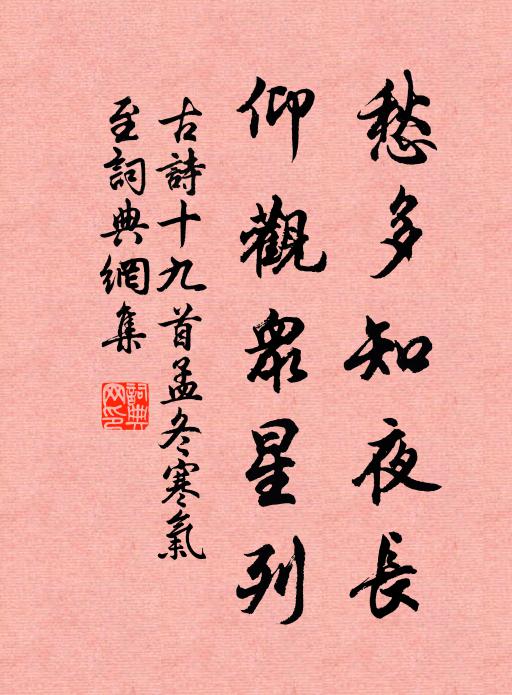 愁多知夜長
仰觀眾星列
古詩十九首孟冬寒氣
至詞典網集
詞典
网印